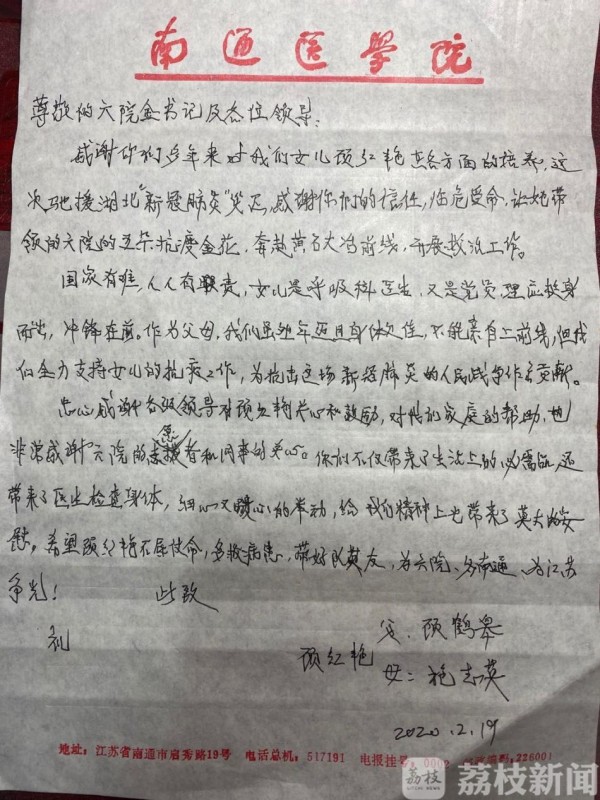 南通医学院
尊敬的六院金书记及各位领导:
感谢你们多年来对我们女儿顾红艳在各方面的培养,这
次驰援湖北"新冠肺炎"灾区,感谢你们的信任,临危受命,让她带
领的六院的五朵抗疫金花,奔赴黄石大冶前线,开展救治工作。
国家有难,人人有职责,女儿是呼吸科医生,又是党员,理应挺身
而出,冲锋在前。作为父母,我们虽然年迈且身体欠佳,不能亲自上前线,但我
们全力支持女儿的抗疫工作,为抗击这场新冠肺炎的人民战争作出贡献。
衷心感谢各级领导对顾红艳关心和鼓励,对我们家庭的帮助,也
非常感谢六院的志愿者和同事的关心。你们不仅带来了生活上的必需品,还
带来了医生检查身体,细心又暖心的举动,给我们精神上也带来了莫大的安
慰。希望顾红艳不辱使命,多救病患,带好队友,为六院、为南通、为江苏
争光!
此致
礼
顾红艳
父:顾鹤皋
母:施志英
2020.2.19
地址:江苏省南通市启秀路19号 电话总机:517191 电报挂号:0002 226001
荔枝
荔枝新闻